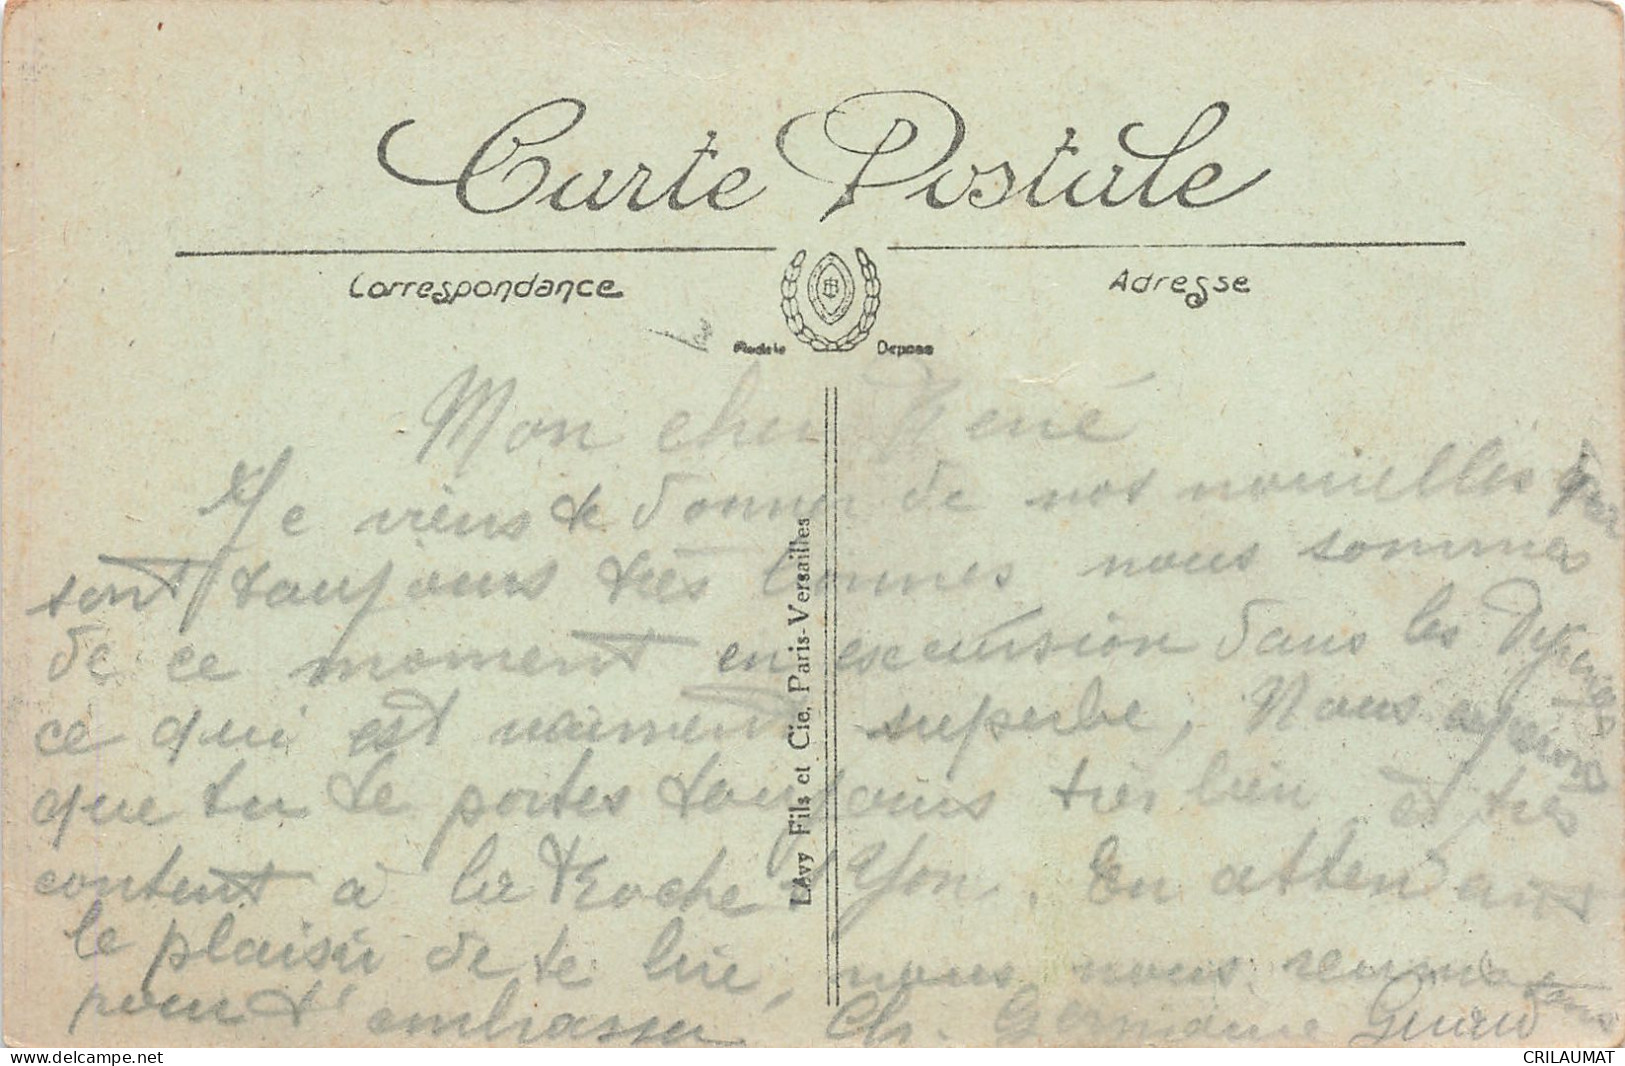 Carte Postale
Correspondance
Adresse
Modèle Déposé
Mon cher René
Je viens te donner de nos nouvelles qui
sont toujours très bonnes nous sommes
de ce moment en excursion dans les Pyrénées
ce qui est vraiment superbe, Nous espérons
que tu te portes toujours très bien et très
content à la Roche s Yon. En attendant
le plaisir de te lire, nous nous réunissons
pour t'embrasser Ch. Germaine Guiard
L'Avy Fils et Cie, Paris-Versailles
CRILAUMAT